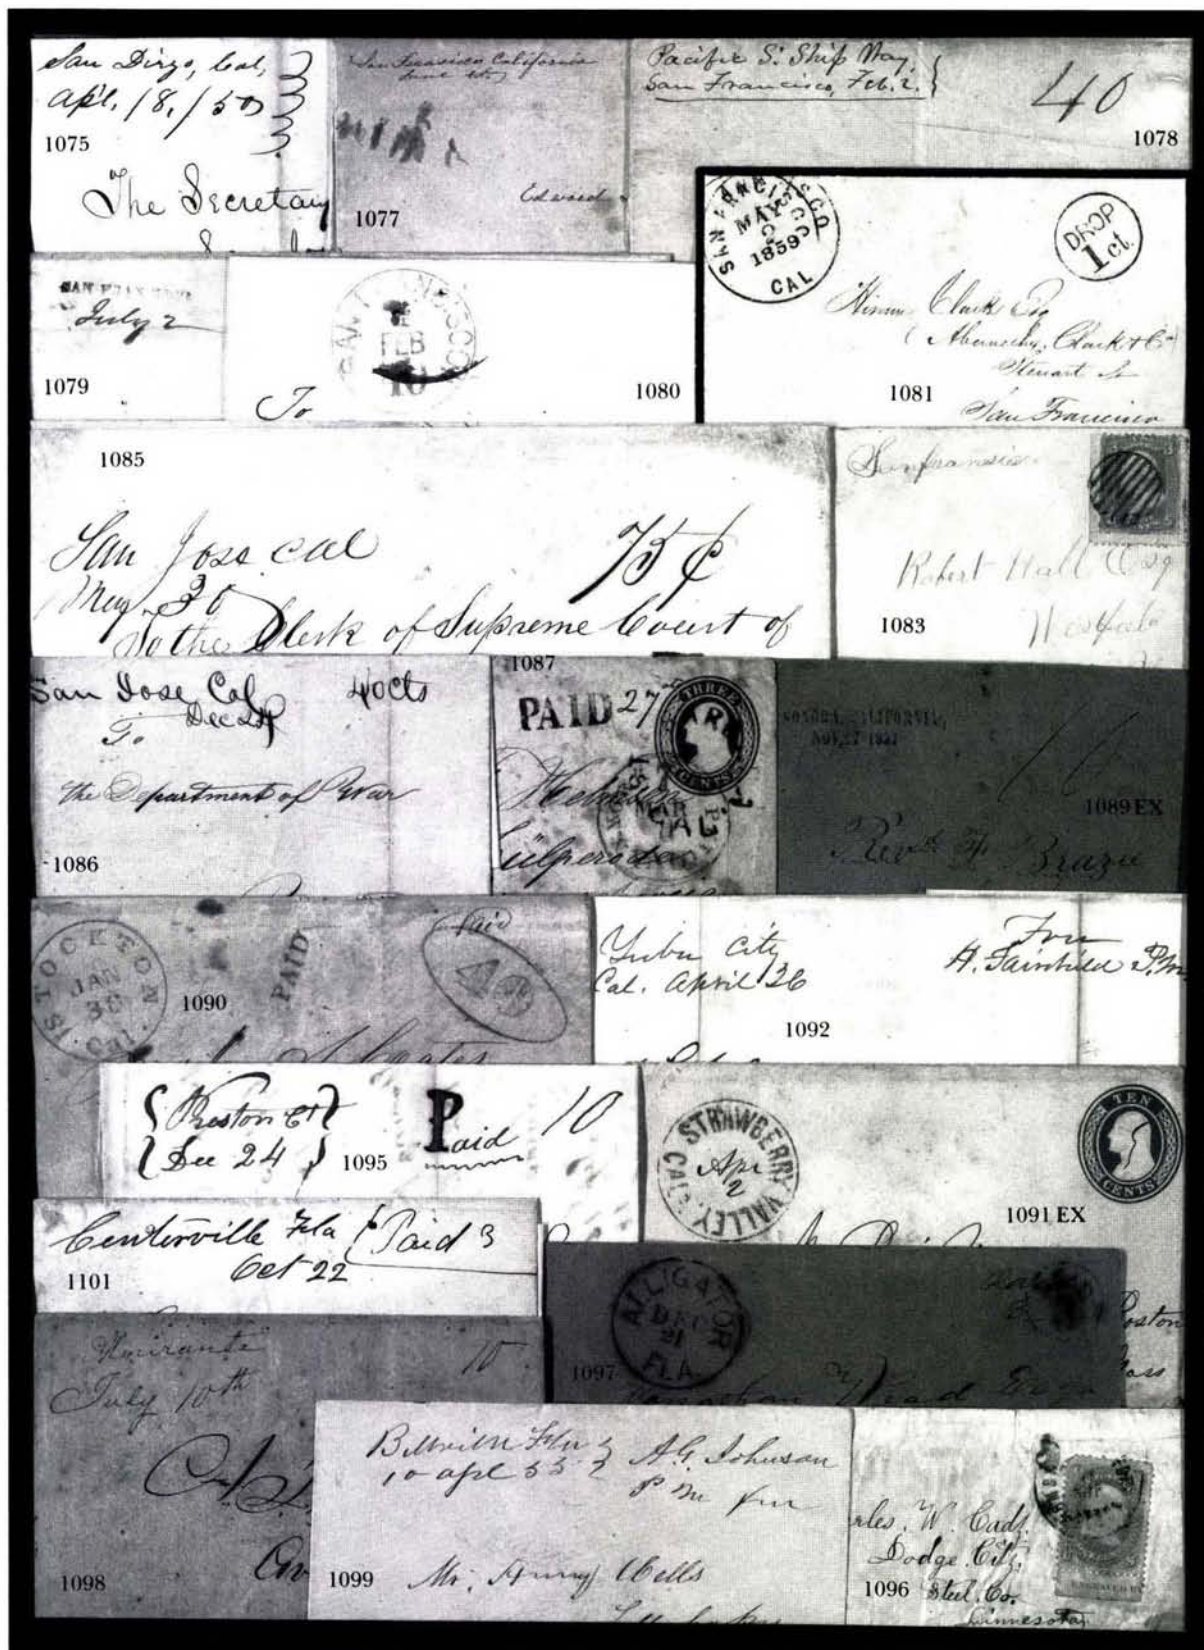 San Diego, Cal,
Apl. 18, / 50
1075
The Secretary
San Francisco California
June
1077
Edward
Pacific S. Ship Way,
San Francisco, Feb. 2.
40
1078
July 2
1079
FEB
10
1080
To
SAN FRANCISCO
MAY
1859
CAL
DROP
1 ct.
Hiram Clark Esq
Abernethy, Clark & Co
Steuart St
1081
San Francisco
1085
San Jose Cal
75 ¢
May. 30
To the Clerk of Supreme Court of
Sanfrancisco
Robert Hall Esq
1083
San Jose Cal
40cts
Dec 24
To
the Department of War
1086
1087
PAID
27
THREE
CENTS
MAR
SONORA, CALIFORNIA,
NOV. 27 1851
1089 EX
Revd F. Brazie
STOCKTON
JAN
30
Cal.
1090
PAID
Paid
40
Yuba City
Cal. April 26
Free
H. Fairchild P.M
1092
Preston Ct
Dec 24
1095
Paid
10
STRAWBERRY VALLEY
CAL
Apr
2
TEN
CENTS
1091 EX
Centerville Fla
Oct 22
Paid 3
1101
ALLIGATOR
DEC
21
FLA.
1097
Boston
Mass
Esqr
Almirante
July 10th
10
1098
Bellville Fla
10 apl 53
A. G. Johnson
P M free
1099
Mr. Henry Wells
rles. W. Eady.
Dodge City,
1096
Steel. Co.
Minnesota